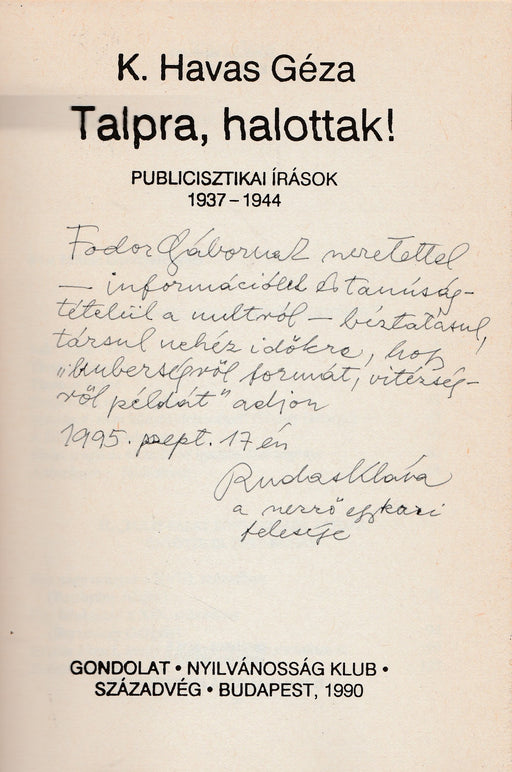 K. Havas Géza
Talpra, halottak!
PUBLICISZTIKAI ÍRÁSOK
1937–1944
Fodor Gábornak szeretettel
— információul és tanúság-
tételül a multról — bíztatásul,
társul nehéz időkre, hogy
"emberségről formát, vitézség-
ről példát" adjon
1995. szept. 17 én
Rudas Klára
a szerző egykori
felesége
GONDOLAT • NYILVÁNOSSÁG KLUB •
SZÁZADVÉG • BUDAPEST, 1990